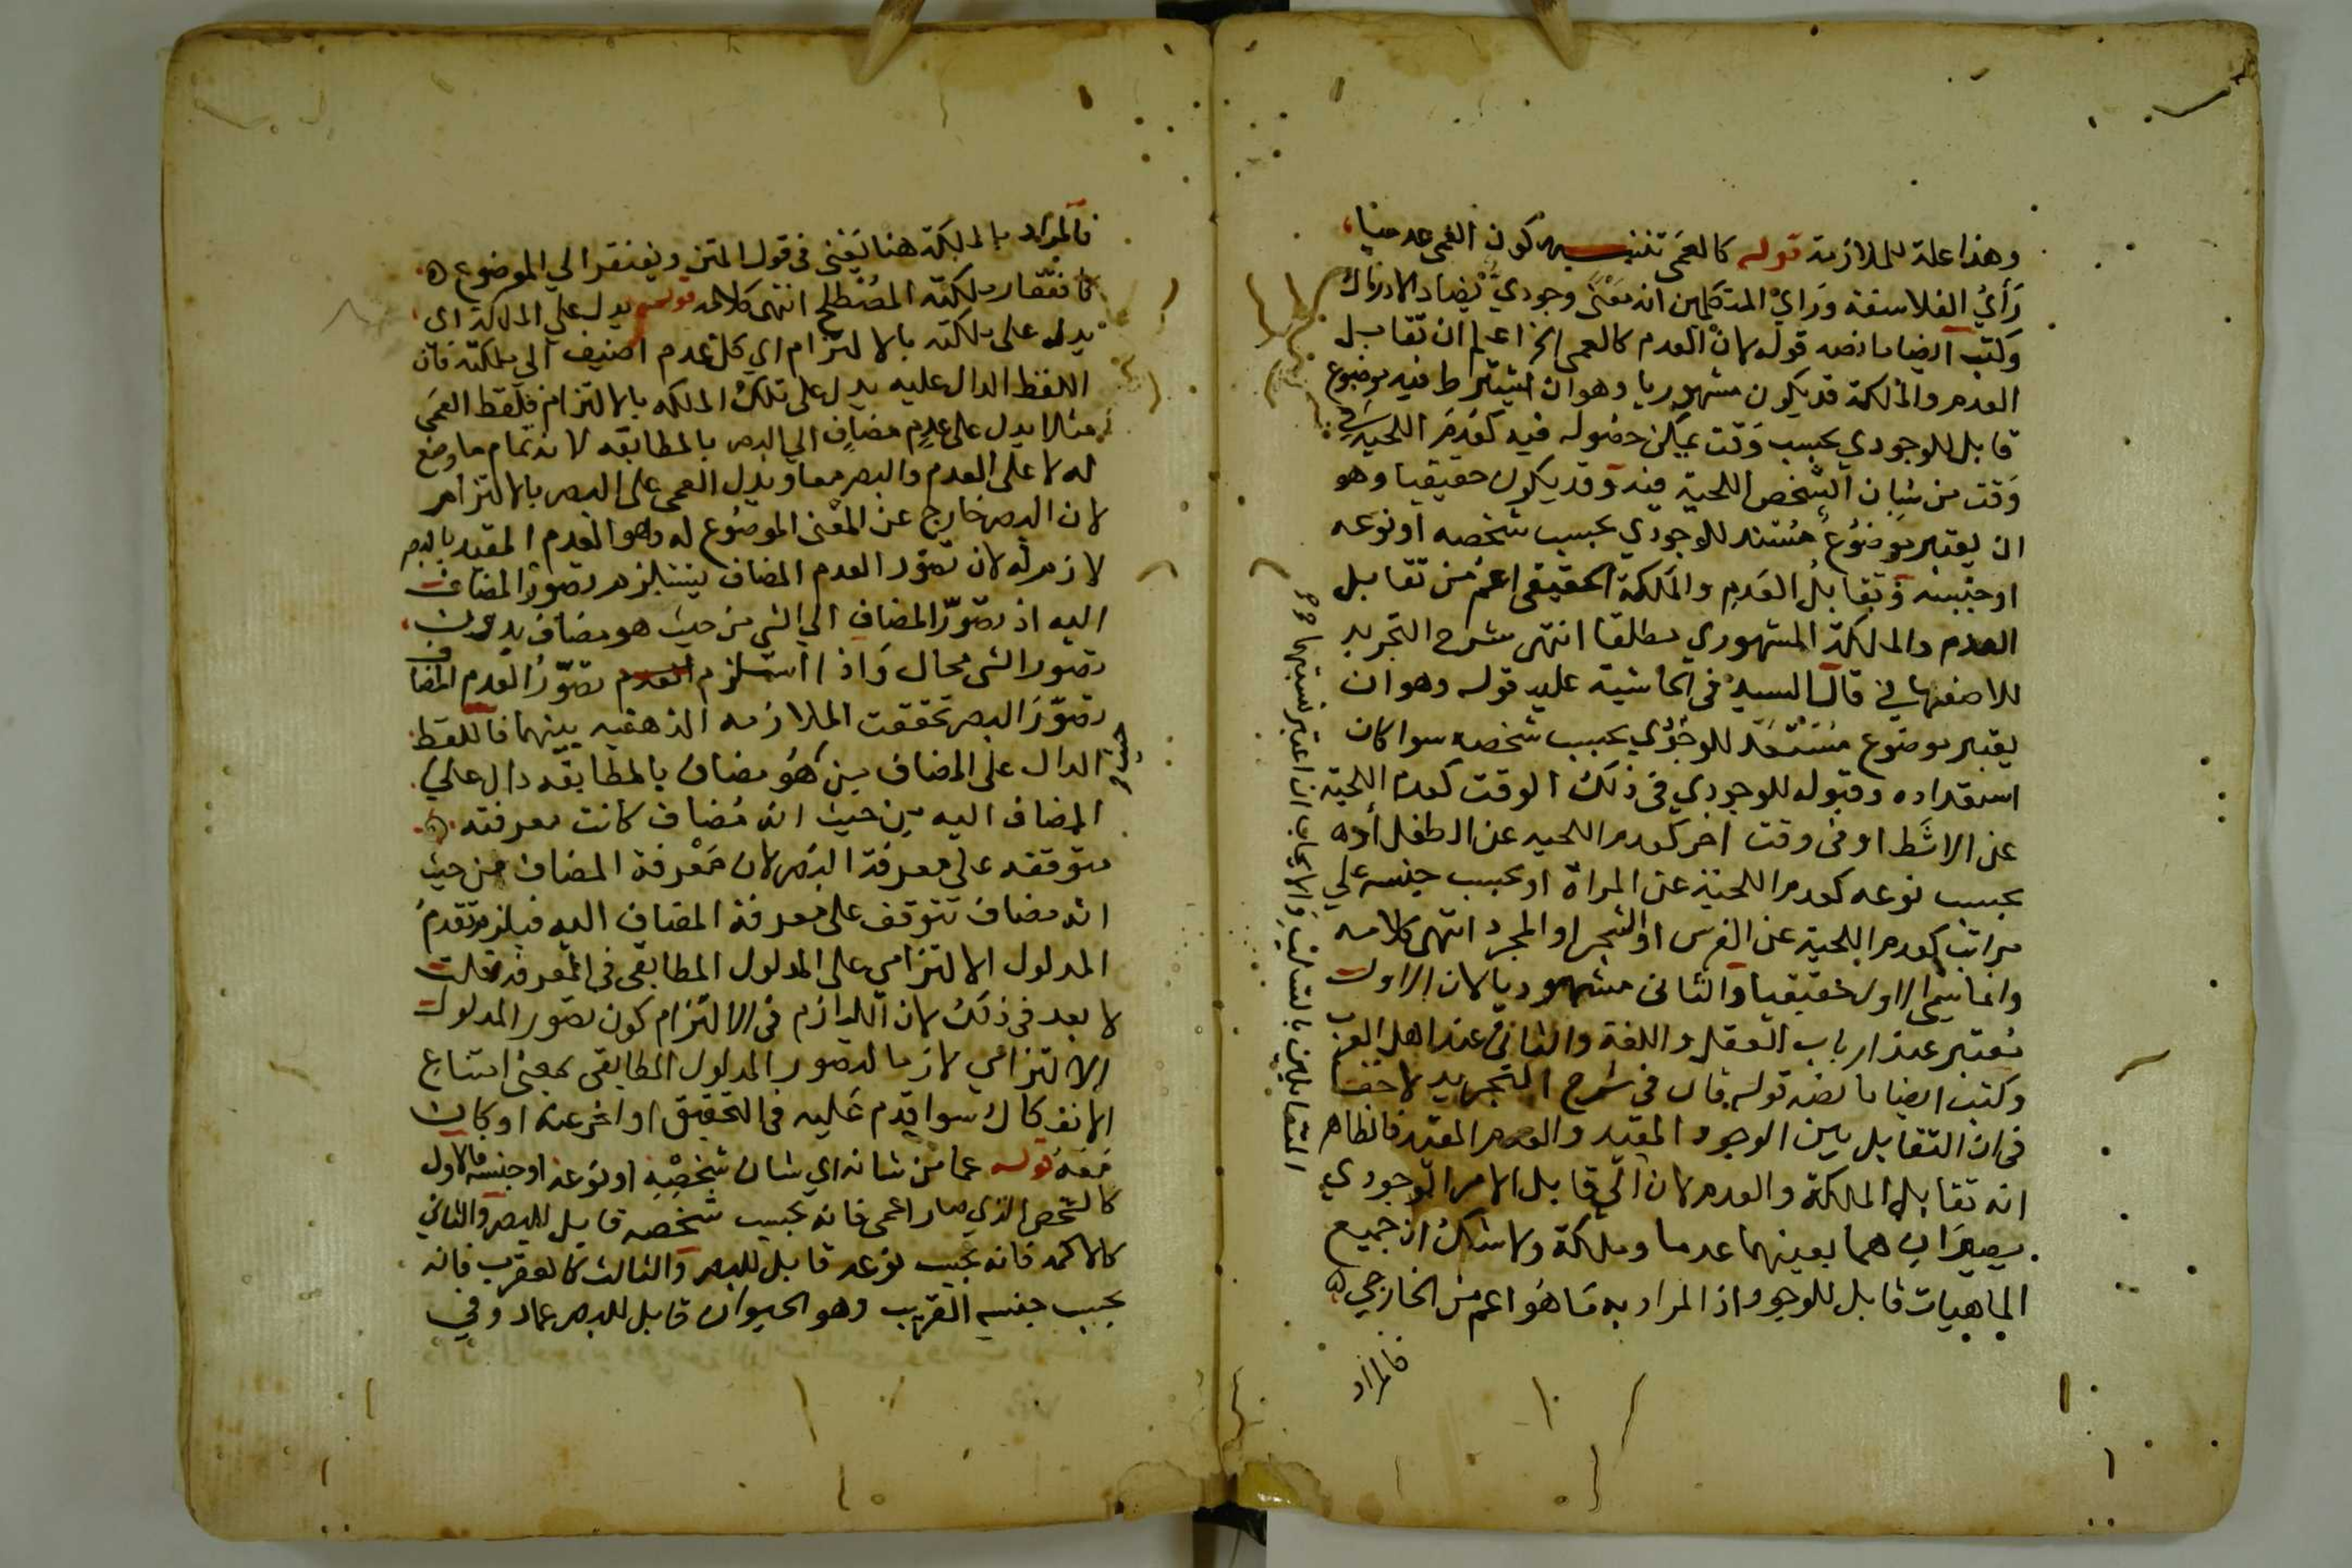 وهذا علة للملازمة قوله كالعمى كون العمى عدميا
رَأيُ الفلاسفة ورَايُ المتكلمين انه مَعْنًى وجوديّ يُضاد الادراك
وكتب ايضا ما نصه قوله لان العدم كالعمى الخ اعلم ان تقابل
العدم والملكة قد يكون مشهوريا وهو ان يشترط فيه موضوع
قابل للوجودي بحسب وَقت يمكن حصوله فيه كعَدَمِ اللحية في
وَقت من شان الشخص اللحية فيه وقد يكون حقيقيا وهو
ان يعتبر موضوعٌ مُستعد للوجودي بحسب شخصه او نوعه
او جنسه وَتقابلُ العَدمِ والمَلكة الحقيقي اعمّ من تقابل
العدم والملكة المشهوري مطلقا انتهى شرح التجريد
للاصفهاني قال السيد في الحاشية عليه قوله وهو ان
يعتبر موضوع مستعد للوجودي بحسب شخصه سوا كان
استعداده وقبوله للوجودي في ذلك الوقت كعدم اللحية
عن الاشَط او في وقت اخر كعدم اللحيه عن الطفل او
بحسب نوعه كعدم اللحية عن المراة او بحسب جنسه علي
مراتب كعدم اللحية عن الفرس او الشجر او المجرد انتهى كلامه
وانما سمي الاول حقيقيا والثاني مشهوريا لان الاول
معتبر عند ارباب العقل واللغة والثاني عند اهل العرب
وكتب ايضا ما نصه قوله قال في شرح التجريد لا خفا
في ان التقابل بين الوجود المقيد والعدم المقيد فالظاهر
انه تقابل الملكة والعدم لان اي قابل الامر الوجودي
يصيران هما بعينهما عدما وملكة ولا شك ان جميع
الماهيات قابل للوجود اذ المراد به مَا هُوَ اعم من الخارجي
فالمراد
المتقابلين بالسلب والايجاب ان اعتبر نسبتهما
فالمراد بالملكة هنا يَعْني في قول المتن ويفتقر الي الموضوع
كافتقار ملكته المصْطلح انتهى كلامه قوله يدل علي الملكة اي
يدل على ملكته بالالتزام اي كل عدم اضيف الي ملكته فان
اللفظ الدال عليه يدل على تلك الملكه بالالتزام فلفظ العمَى
مثلا يدل على عدمٍ مضافٍ الى البصر بالمطابقه لانه تمام ما وضع
له لا على العدم والبصر معا ويدل العمى على البصر بالالتزام
لان البصر خارج عن المعْنى الموضُوع له وهو العدم المقيد بالبصر
لازم له لان تصوّر العدم المضاف يستلزم تصورَ المضاف
اليه اذ تصوّر المضافِ الي الشي من حيث هو مضاف بدون
تصور الشي محال وَاذا استلزم تصوّرُ العدم المضاف
تصوّرَ البصر تحققت الملازمه الذهنيه بينهما فاللفظ
الدال على المضاف من حيث هُو مضاف بالمطابقه دال علي
المضاف اليه من حيث انه مُضاف كانت معرفته
متوقفه على معرفة البصر لان مَعْرفة المضاف من حيث
انه مضاف تتوقف على معرفة المضاف اليه فيلزم تقدمُ
المدلول الالتزامي على المدلول المطابقي في المعرفة قلت
لا بعد في ذلك لان اللازم في الالتزام كون تصور المدلول
الالتزامي لازما لتصور المدلول المطابقي بمعنى امتناع
الانفكاك سوا قدم عليه في التحقيق او اخر عنه او كان
مَعَهُ قوله عما من شانه اي شان شخصِهِ او نوعه او جنسه فالاول
كالشخص الذي صار اعمى فانه بحسب شخصه قابل للبصر والثاني
كالاكمه فانه بحسب نوعه قابل للبصر والثالث كالعقرب فانه
بحسب جنسه القريب وهو الحيوان قابل للبصر عماد وفي